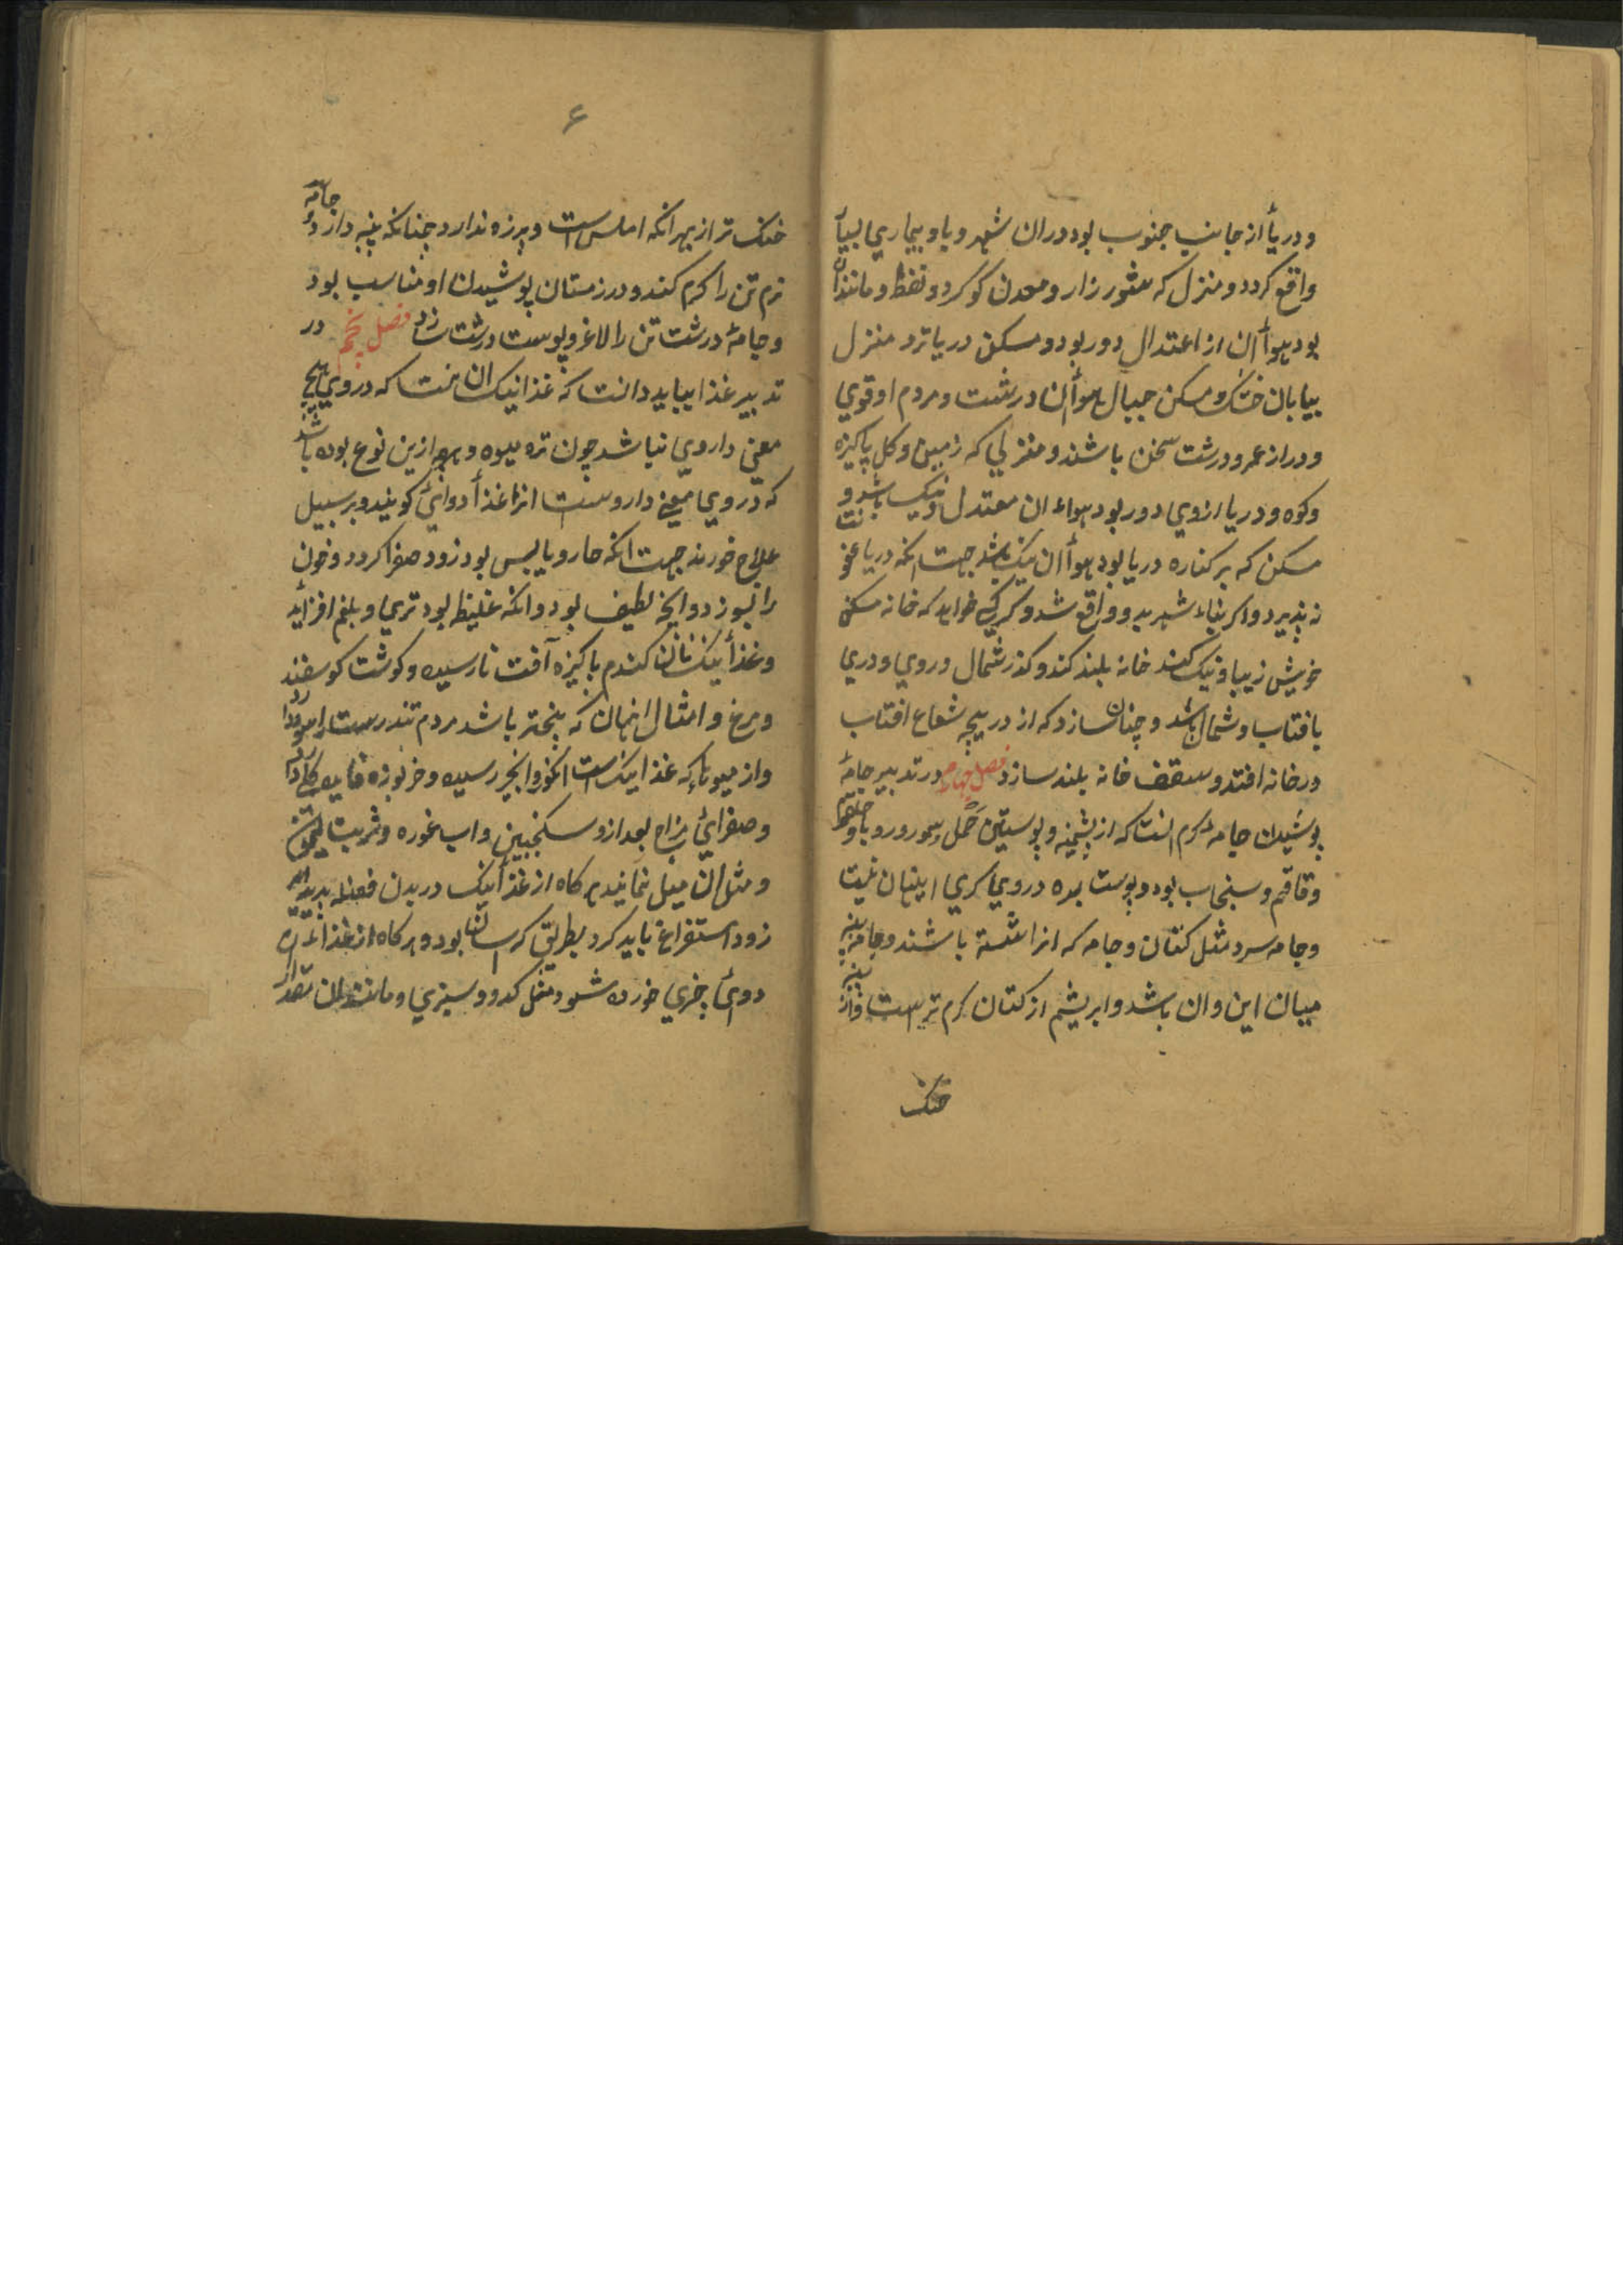 ودریأ از جانب جنوب بود دران شهر وبا و بیماری بسیار
واقع کردد ومنزل که شور زار ومعدن کوکرد ونفط ومانندان
بود هوأ آن از اعتدال دور بود ومسکن دریا ترد منزل
بیابان خشک ومسکن جبال هوأ ان درشت ومردم او قوی
ودراز عمر ودرشت سخن باشند ومنزلی که زمین وکل پاکیزه
وکوه ودریا ازوی دور بود هواء ان معتدل ونیک باشد و
مسکن که برکناره دریا بود هوأ ان نیک باشد جهت انکه دریا عفونت
نپذیرد واکر بناء شهر بد وواقع شد وکر کی خواهد که خانه مسکن
خویش زیبا ونیک کند خانه بلند کند وکذر شمال وروی ودری
بافتاب وشمال باشد وچنان سازد که از دریچه شعاع افتاب
درخانه افتد وسقف خانه بلند سازد فصل چهارم در تدبیر جامهٔ
پوشیدن جامهٔ کرم انست که از پشمینه وپوستین حمل وسمور وروباه
وقاقم وسنجاب بود وپوست بره در وی کرمی اینان نیست
وجامه سرد مثل کتان وجامه که انرا شسته باشند وجامه پنبه
میان این وان باشد وابریشم از کتان کرم تر است واز پنبه
خنک
۶
خنک تر از بهر انکه املس است وپرزه ندارد چنانکه پنبه دارد وجامه
نرم تن را کرم کند ودر زمستان پوشیدن او مناسب بود
وجامهٔ درشت تن را لاغر وپوست درشت سازد فصل پنجم در
تدبیر غذا بباید دانست که غذا نیک ان هست که در وی هیچ
معنی داروی نباشد چون تره میوه وهر چه ازین نوع بوده باشد
که در وی معنی دارو ست انرا غذأ دوائی کویند وبر سبیل
علاج خورند جهت انکه حار ویابس بود زود صفرا کردد وخون
را بسوزد وانچ لطیف بود وانکه غلیظ بود تری وبلغم افزاید
وغذأ نیک نان کندم پاکیزه آفت نارسیده وکوشت کوسفند
ومرغ وامثال اینهان که پخته تر باشد مردم تندرست را سود دارد
واز میوها که غذا نیک است انکور وانجیر رسیده وخربوزه
وصفرائ مزاج بعد ازو سکنجبین واب غوره وشربت لیمون
ومثل ان میل نمایند هرکاه از غذأ نیک در بدن فضله پدید اید
زود استفراغ باید کرد بطریق که اسان بود وهرکاه از غذاء
دوئ چیزی خورده شود مثل کدو وسبزی ومانند ان مقدار